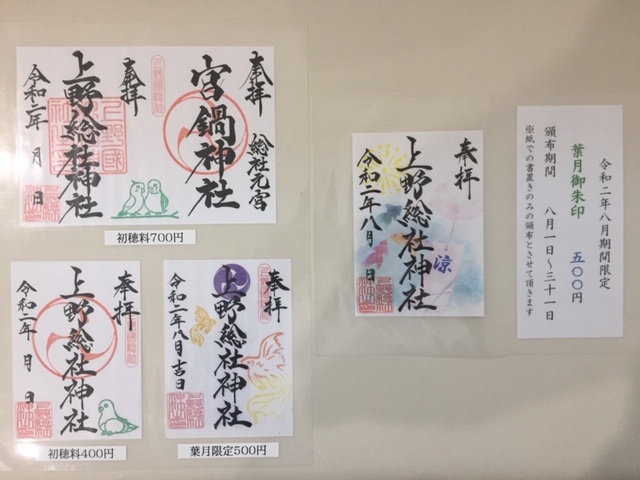 奉拝
総社元宮
宮鍋神社
奉拝
上野総社神社
令和二年 月 日
初穂料700円
奉拝
上野総社神社
令和二年 月 日
初穂料400円
奉拝
上野総社神社
令和二年八月吉日
葉月限定500円
奉拝
上野総社神社
涼
令和二年八月 日
令和二年八月期間限定
葉月御朱印 五〇〇円
頒布期間 八月一日～三十一日
※紙での書置きのみの頒布とさせて頂きます